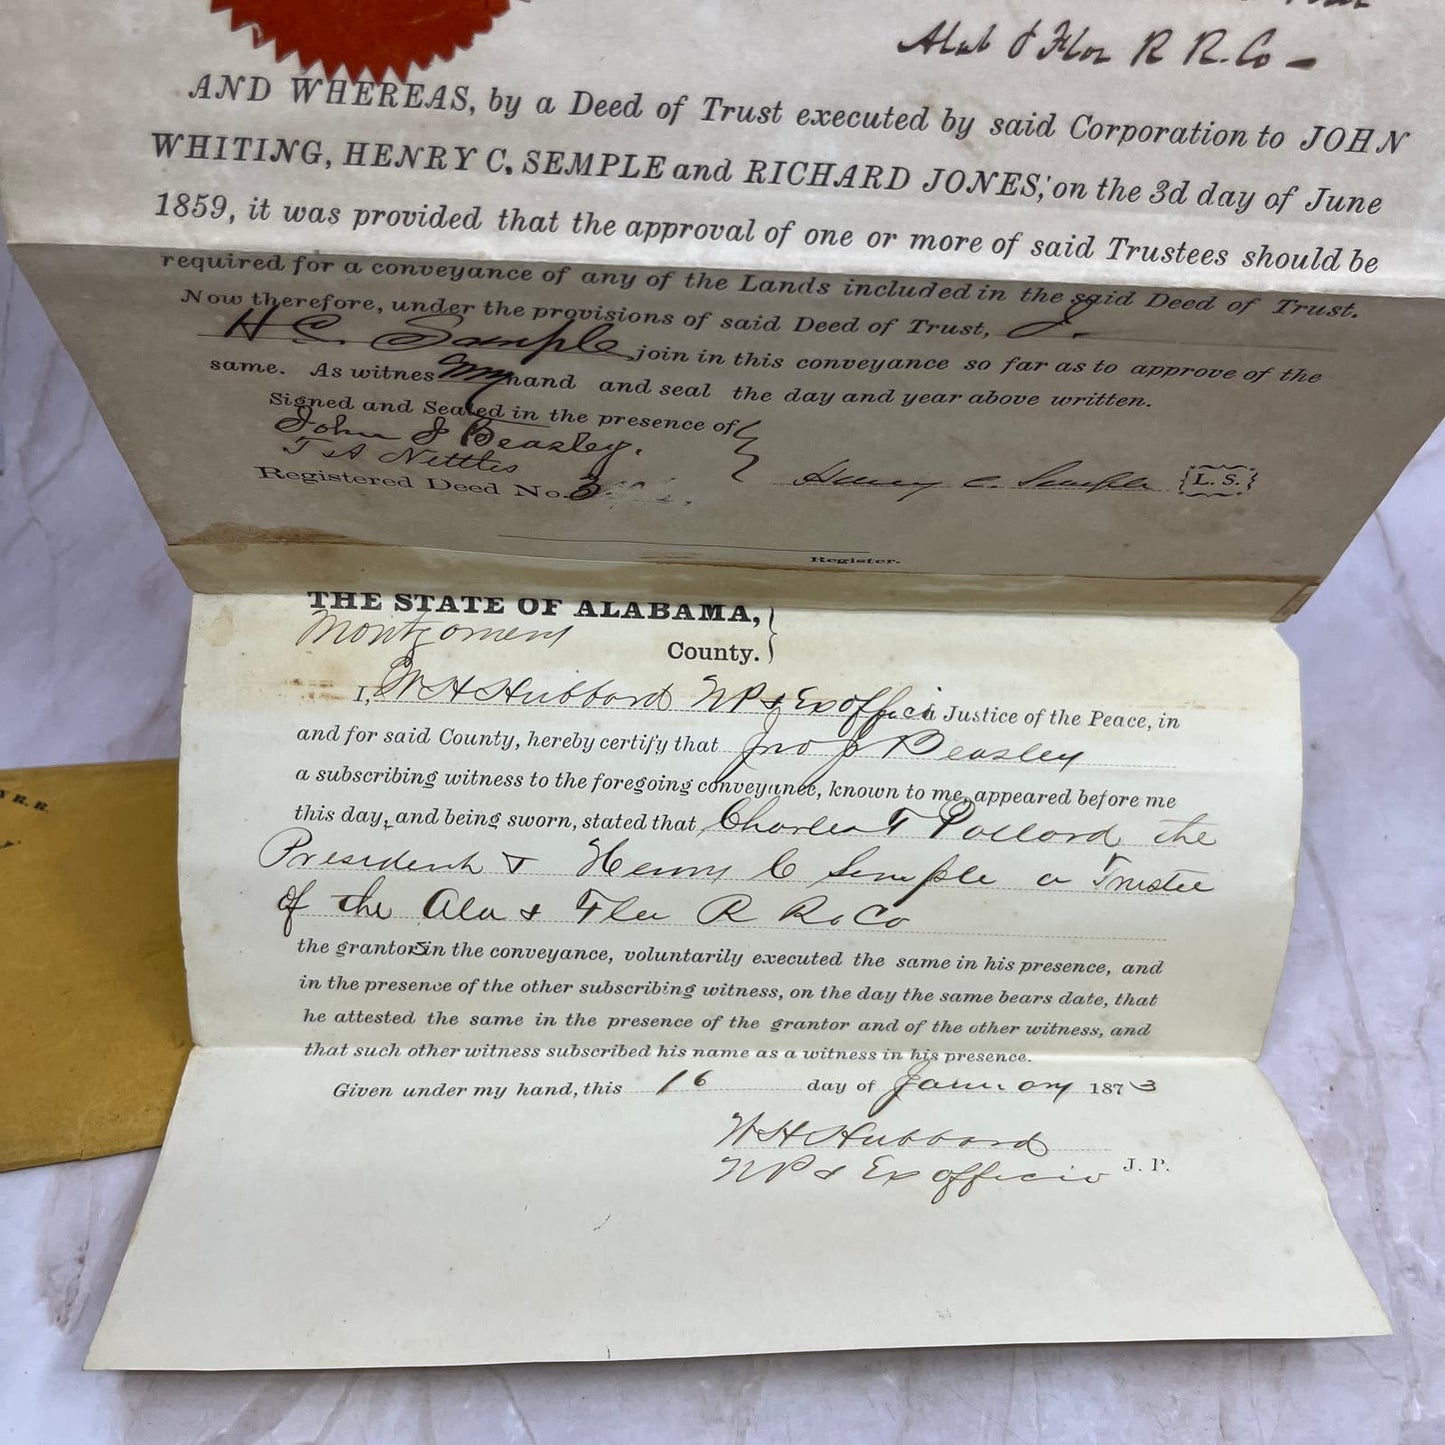 Alab & Flor R R. Co -
AND WHEREAS, by a Deed of Trust executed by said Corporation to JOHN
WHITING, HENRY C. SEMPLE and RICHARD JONES, on the 3d day of June
1859, it was provided that the approval of one or more of said Trustees should be
required for a conveyance of any of the Lands included in the said Deed of Trust.
Now therefore, under the provisions of said Deed of Trust, I.
H C. Semple join in this conveyance so far as to approve of the
same. As witnes my hand and seal the day and year above written.
Signed and Sealed in the presence of
John J Beasley.
T A Nettles
Henry C. Semple L. S.
Registered Deed No.
Register.
THE STATE OF ALABAMA,
Montgomery
County.
I, W H Hubbard NP & Ex officio Justice of the Peace, in
and for said County, hereby certify that Jno J Beasley
a subscribing witness to the foregoing conveyance, known to me, appeared before me
this day, and being sworn, stated that Charles T Pollard the
President & Henry C Semple a Trustee
of the Ala & Fla R R. Co
the grantors in the conveyance, voluntarily executed the same in his presence, and
in the presence of the other subscribing witness, on the day the same bears date, that
he attested the same in the presence of the grantor and of the other witness, and
that such other witness subscribed his name as a witness in his presence.
Given under my hand, this 16 day of January 1873
W H Hubbard
NP & Ex officio J. P.
R.R.